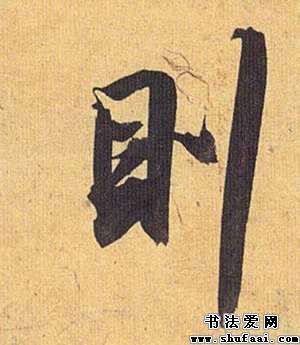 則
书法爱网
www.shufaai.com